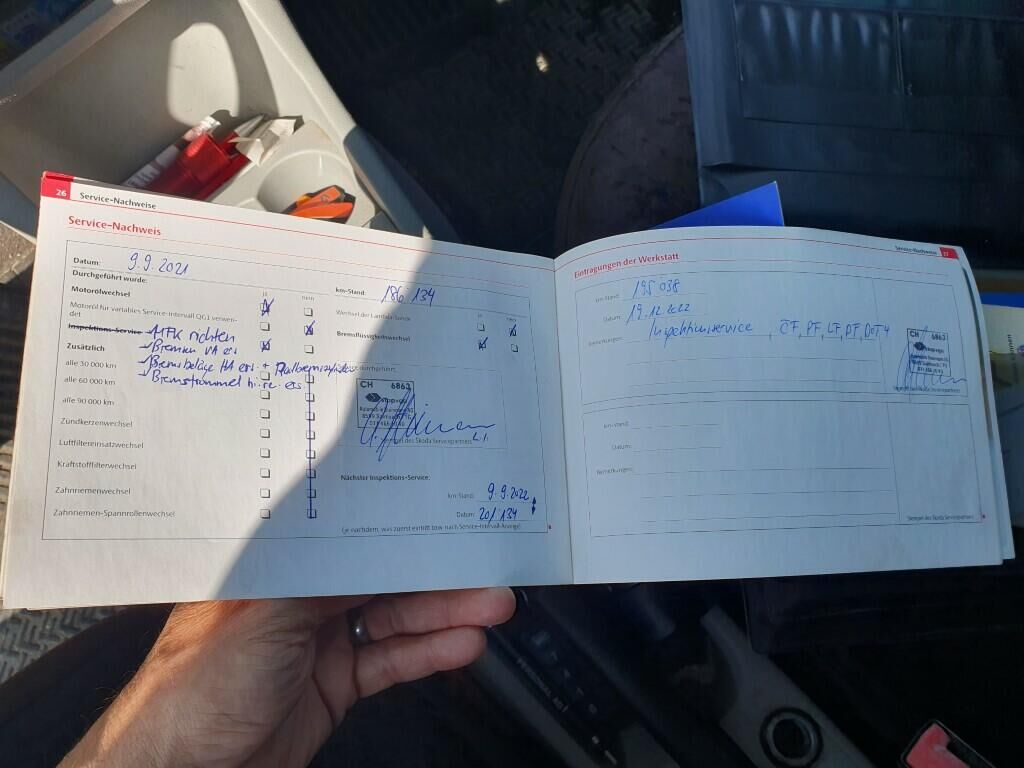 26 Service-Nachweise
Service-Nachweis
Datum: 9.9.2021
Durchgeführt wurde:
km-Stand: 186 134
Motorölwechsel
ja nein
Motoröl für variables Service-Intervall QG1 verwen-
det
Wechsel der Lambda-Sonde
ja nein
Inspektions-Service - MFK richten
Bremsflüssigkeitswechsel
Zusätzlich - Bremsen VA ers
alle 30 000 km - Bremsbeläge HA ers +
durchgeführt:
alle 60 000 km - Bremstrommel hi. re. ers.
alle 90 000 km
Zündkerzenwechsel
Luftfiltereinsatzwechsel
Kraftstofffilterwechsel
Zahnriemenwechsel
Zahnriemen-Spannrollenwechsel
CH 6863
stop+go
Stempel des Škoda Servicepartners
Nächster Inspektions-Service:
km-Stand: 9.9.2022
Datum: 201 134
(je nachdem, was zuerst eintritt bzw. nach Service-Intervall-Anzeige)
Service-Nachweise 27
Eintragungen der Werkstatt
km-Stand: 195 038
Datum: 19.12.2022
Bemerkungen: Inspektionsservice, ÖF, PF, LF, DOT 4
CH 6863
stop+go
Stempel des Škoda Servicepartners
km-Stand:
Datum:
Bemerkungen:
Stempel des Škoda Servicepartners